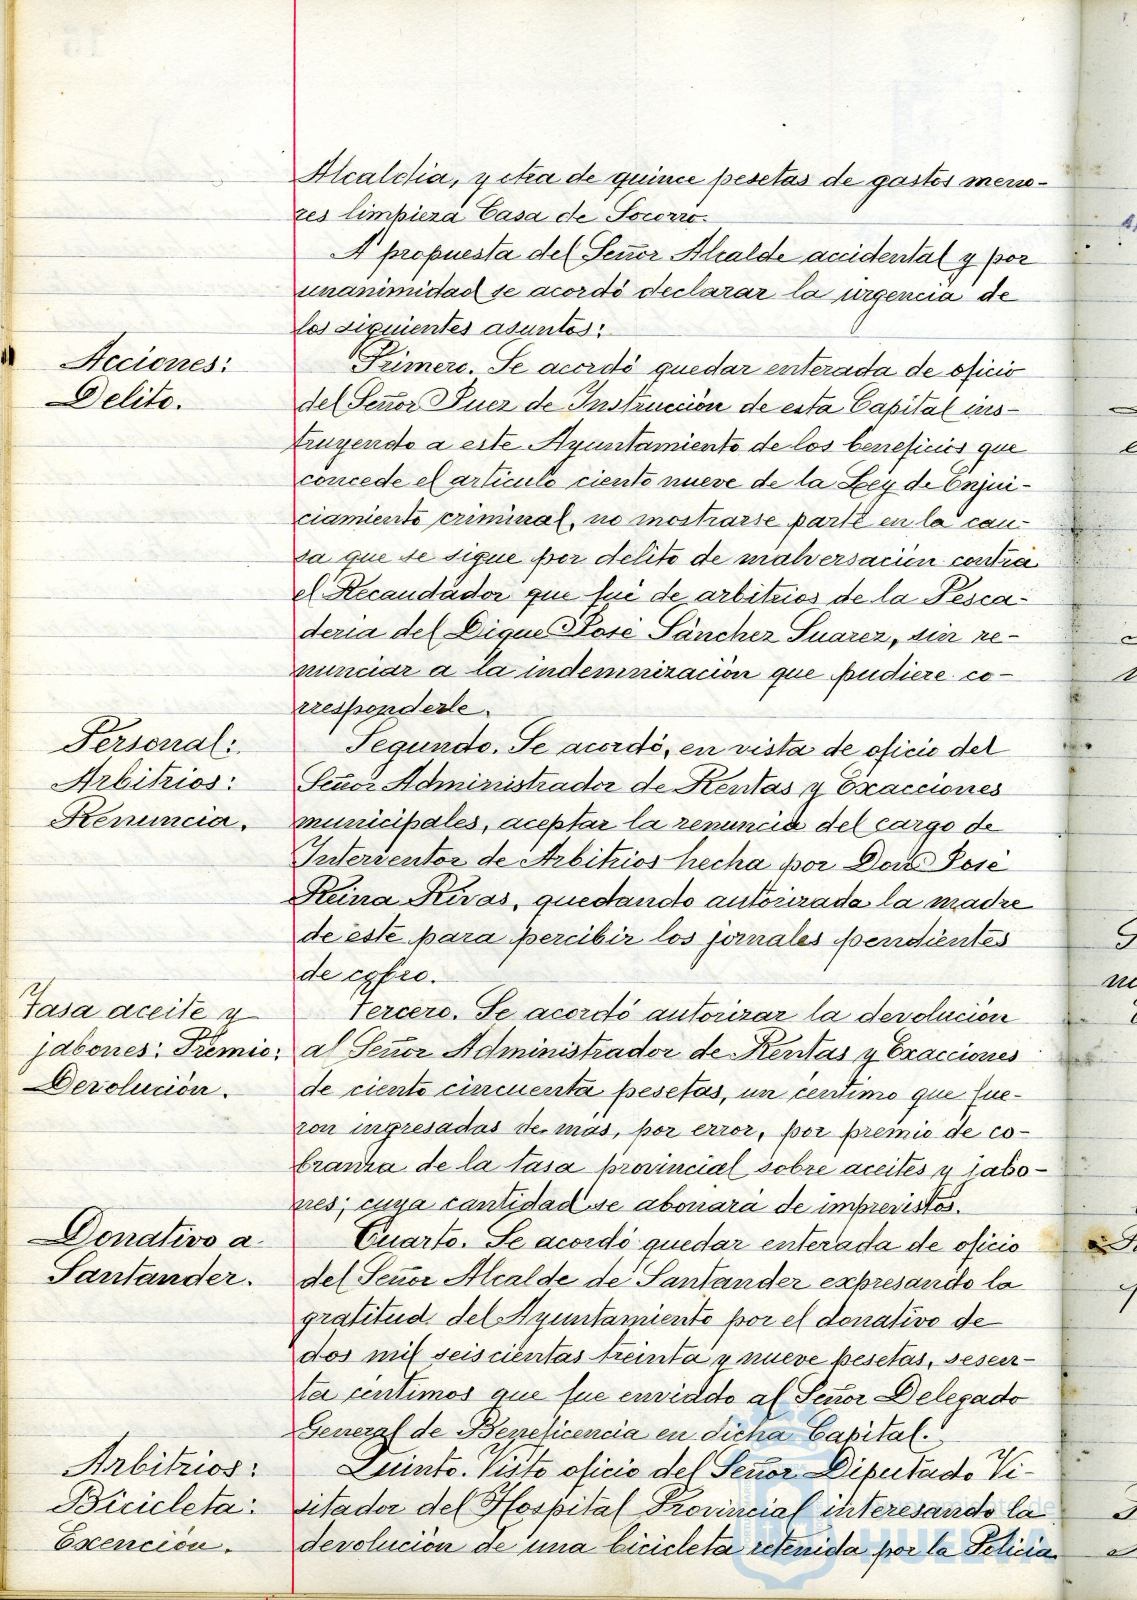 Alcaldía, y otra de quince pesetas de gastos meno-
res limpieza Casa de Socorro.
A propuesta del Señor Alcalde accidental y por
unanimidad se acordó declarar la urgencia de
los siguientes asuntos:
Acciones:
Delito.
Primero. Se acordó quedar enterada de oficio
del Señor Juez de Instrucción de esta Capital ins-
truyendo a este Ayuntamiento de los beneficios que
concede el articulo ciento nueve de la Ley de Enjui-
ciamiento criminal, no mostrarse parte en la cau-
sa que se sigue por delito de malversación contra
el Recaudador que fué de arbitrios de la Pesca-
deria del Dique José Sánchez Suarez, sin re-
nunciar a la indemnización que pudiere co-
rresponderle.
Personal:
Arbitrios:
Renuncia.
Segundo. Se acordó, en vista de oficio del
Señor Administrador de Rentas y Exacciones
municipales, aceptar la renuncia del cargo de
Interventor de Arbitrios hecha por Don José
Reina Rivas, quedando autorizada la madre
de éste para percibir los jornales pendientes
de cobro.
Tasa aceite y
jabones: Premio:
Devolución.
Tercero. Se acordó autorizar la devolución
al Señor Administrador de Rentas y Exacciones
de ciento cincuenta pesetas, un céntimo que fue-
ron ingresadas de más, por error, por premio de co-
branza de la tasa provincial sobre aceites y jabo-
nes; cuya cantidad se abonará de imprevistos.
Donativo a
Santander.
Cuarto. Se acordó quedar enterada de oficio
del Señor Alcalde de Santander expresando la
gratitud del Ayuntamiento por el donativo de
dos mil seiscientas treinta y nueve pesetas, sesen-
ta céntimos que fue enviado al Señor Delegado
General de Beneficencia en dicha Capital.
Arbitrios:
Bicicleta:
Exención.
Quinto. Visto oficio del Señor Diputado Vi-
sitador del Hospital Provincial interesando la
devolución de una bicicleta retenida por la Policia